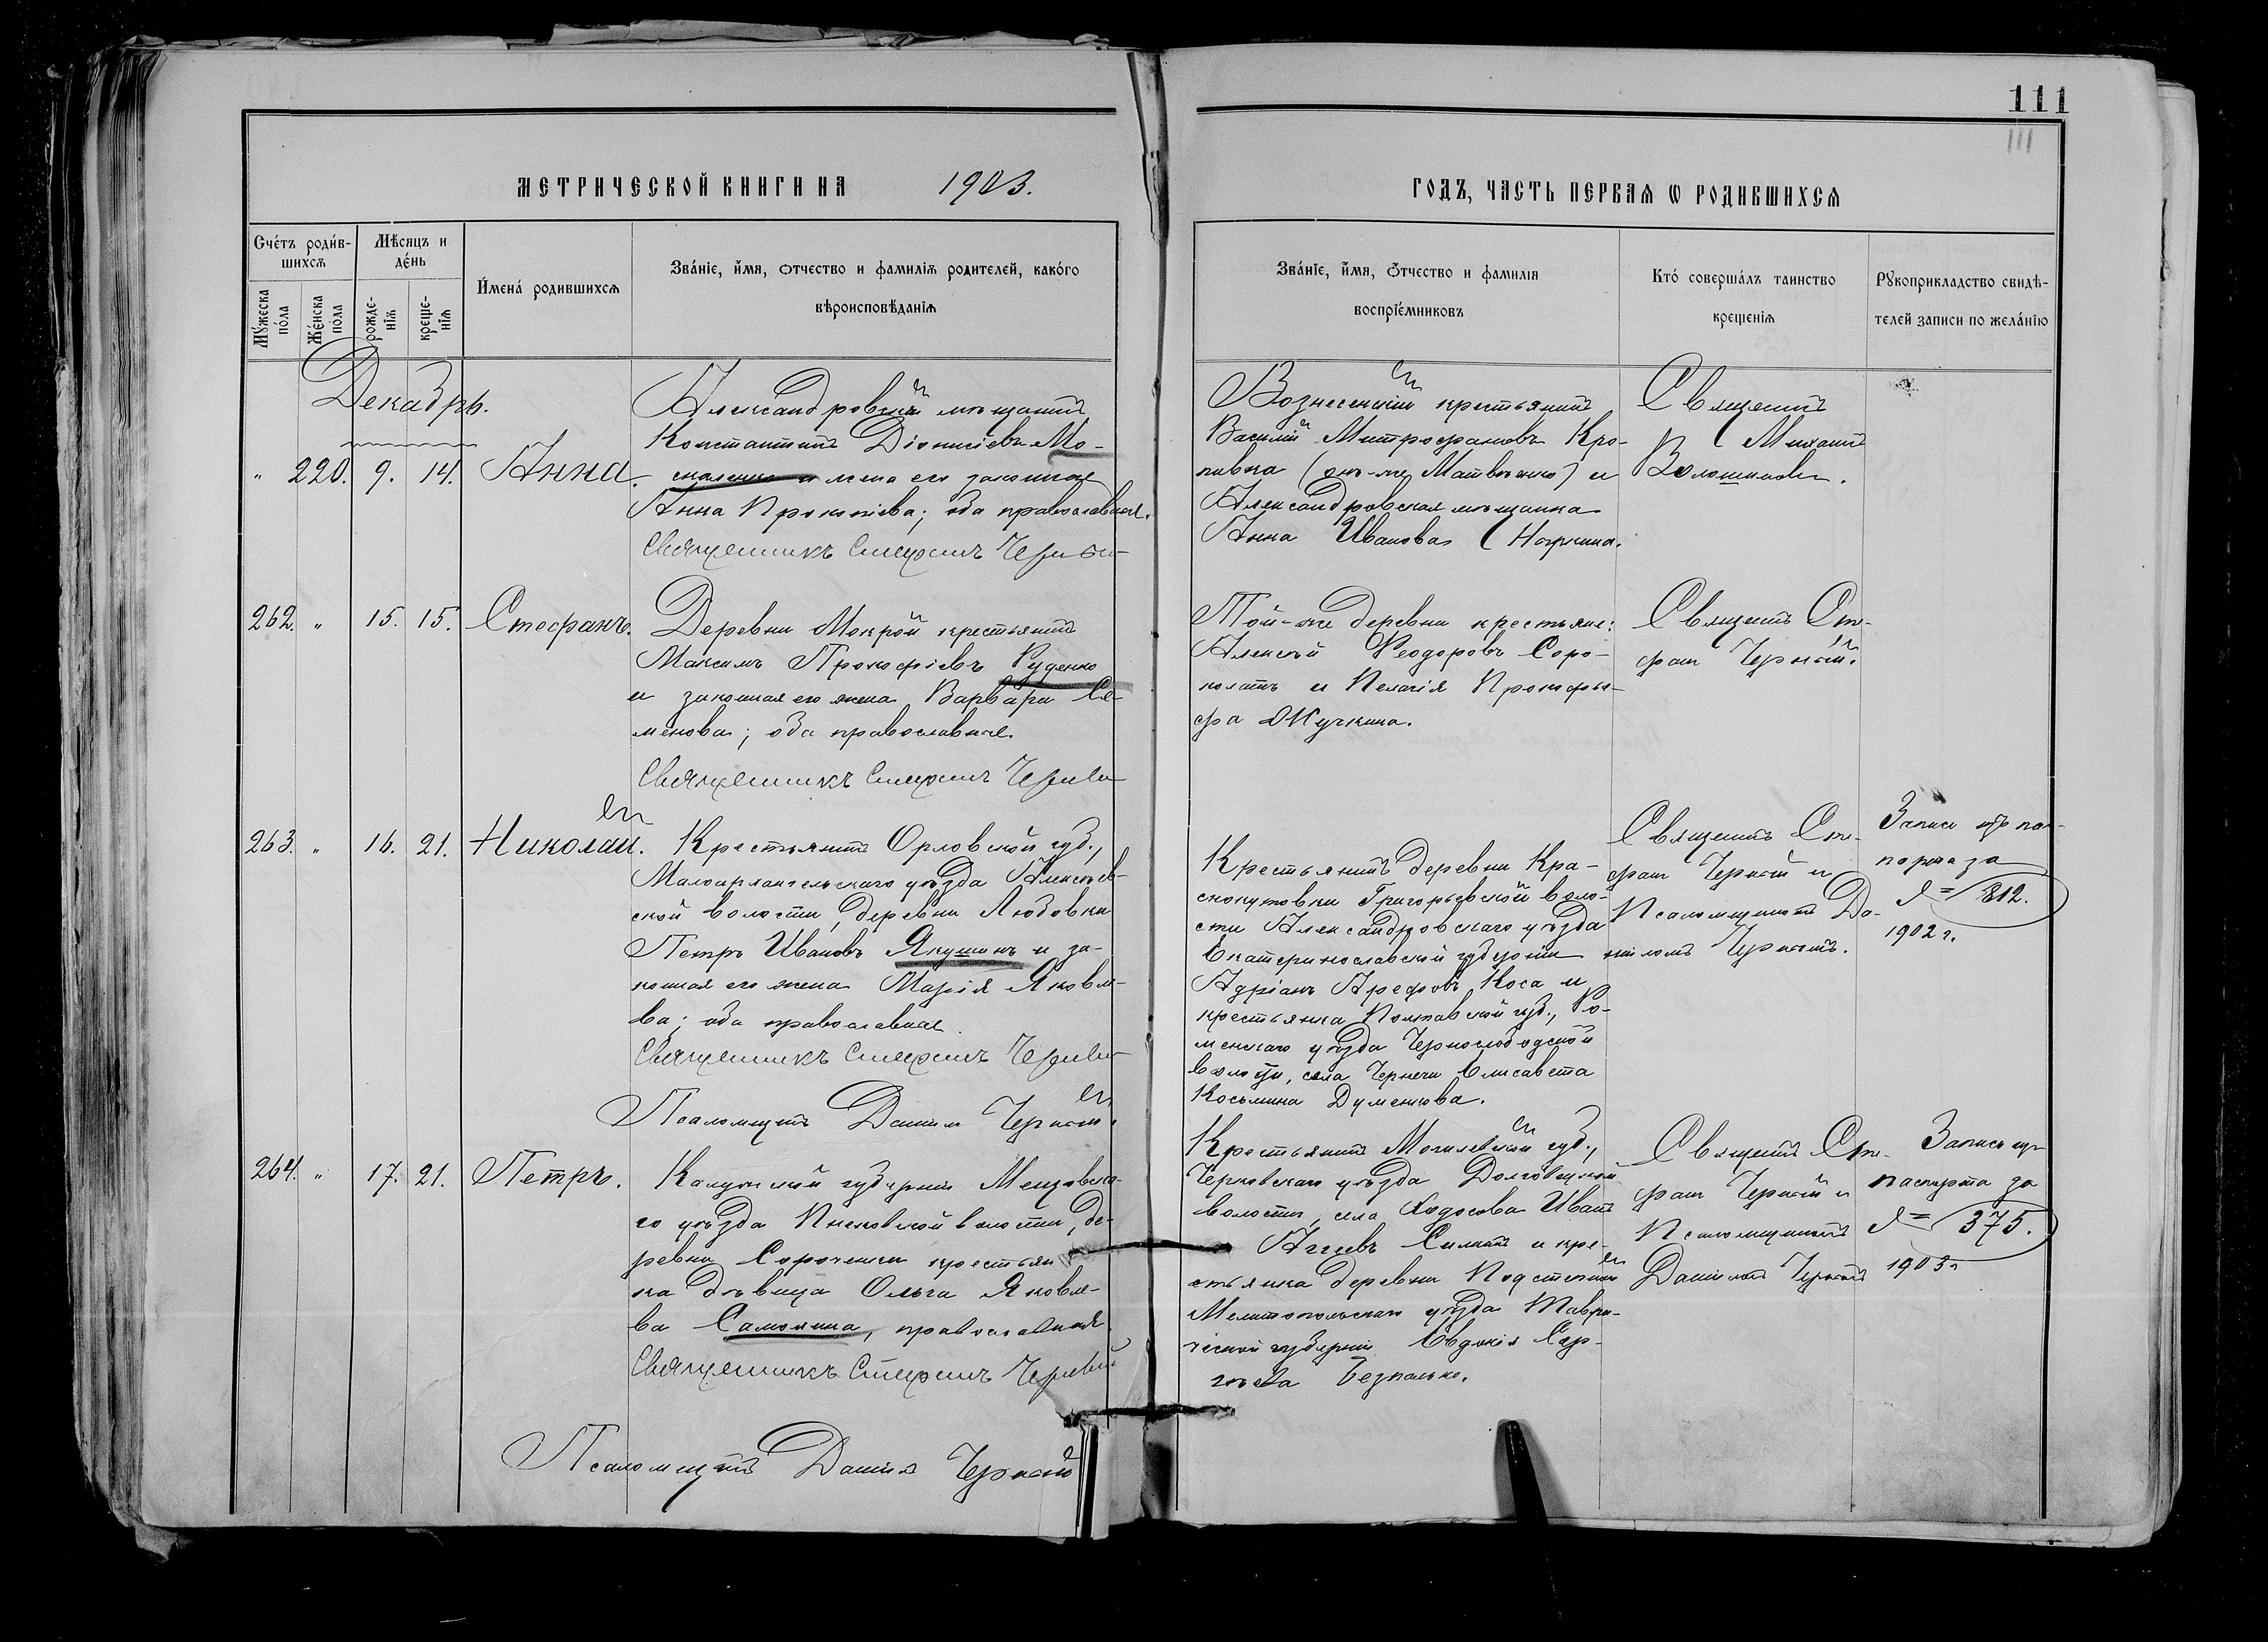 111
111
МЕТРИЧЕСКОЙ КНИГИ НА 1903.
ГОДЪ, ЧАСТЬ ПЕРВАЯ Ѡ РОДИВШИХСЯ
Счéтъ родив-
шихся
Мѣсяцъ и
дéнь
Мýжеска
пóла
Жéнска
пóла
рожде-
нія
креще-
нія
Именá родившихся
Звáніе, имя, отчество и фамилія родителей, какóго
вѣроисповѣданія
Звáніе, имя, отчество и фамилія
воспріéмниковъ
Ктó совершáлъ таинство
крещенія
Рукоприкладство свидѣ-
телей записи по желáнію
Декабрь.
" 220. 9. 14. Анна.
Александровскій мѣщанинъ
Константинъ Діонисіевъ Мо-
скаленко и жена его законная
Анна Прокопіева; оба православные.
Священникъ Стефанъ
Вознесенскій крестьянинъ
Василій Митрофановъ Кро-
пивка (онъ-же Матвѣенко) и
Александровская мѣщанка
Анна Иванова
Священникъ
Михаилъ
Волошиновъ.
262. " 15. 15. Стефанъ.
Деревни Мокрой крестьянинъ
Максимъ Прокофіевъ Руденко
и законная его жена Варвара Се-
менова; оба православные.
Священникъ Стефанъ
Той-же деревни крестьяне:
Алексѣй Ѳеодоровъ Соро-
колатъ и Пелагія Прокофье-
Священникъ Сте-
фанъ Черный.
263. " 16. 21. Николай.
Крестьянинъ Орловской губ.,
Малоархангельскаго уѣзда Алексѣев-
ской волости, деревни Любовки
Петръ Ивановъ Якушинъ и за-
конная его жена Марія Яковле-
ва; оба православные.
Священникъ Стефанъ
Псаломщикъ Даніилъ Черный.
Крестьянинъ деревни Кра-
снокутовки Григорьевской воло-
сти Александровскаго уѣзда
Екатеринославской губерніи
Адріанъ Арефовъ Коса и
крестьянка Полтавской губ., Ро-
менскаго уѣзда Чернослободской
волости, села Чернечи Елисавета
Косьмина Думенкова.
Священникъ Сте-
фанъ Черный и
Псаломщикъ Да-
ніилъ Черный.
Запись изъ пас-
порта за
№ 812.
1902 г.
264. " 17. 21. Петръ.
Калужской губерніи Мещовска-
го уѣзда волости, де-
ревни Сороченки крестьян
ка дѣвица Ольга Яковле-
ва Самохина, православная.
Священникъ Стефанъ
Псаломщикъ Даніилъ Черный
Крестьянинъ Могилевской губ.,
Чериковскаго уѣзда Долговицкой
волости, села Ходосова Иванъ
и кре-
стьянка деревни Подстепной
Мелитопольскаго уѣзда Таври-
ческой губерніи Евдокія Сер-
гѣева Безпалько.
Священникъ Сте-
фанъ Черный и
Псаломщикъ
Даніилъ Черный
Запись изъ
паспорта за
№ 375.
1903 г.